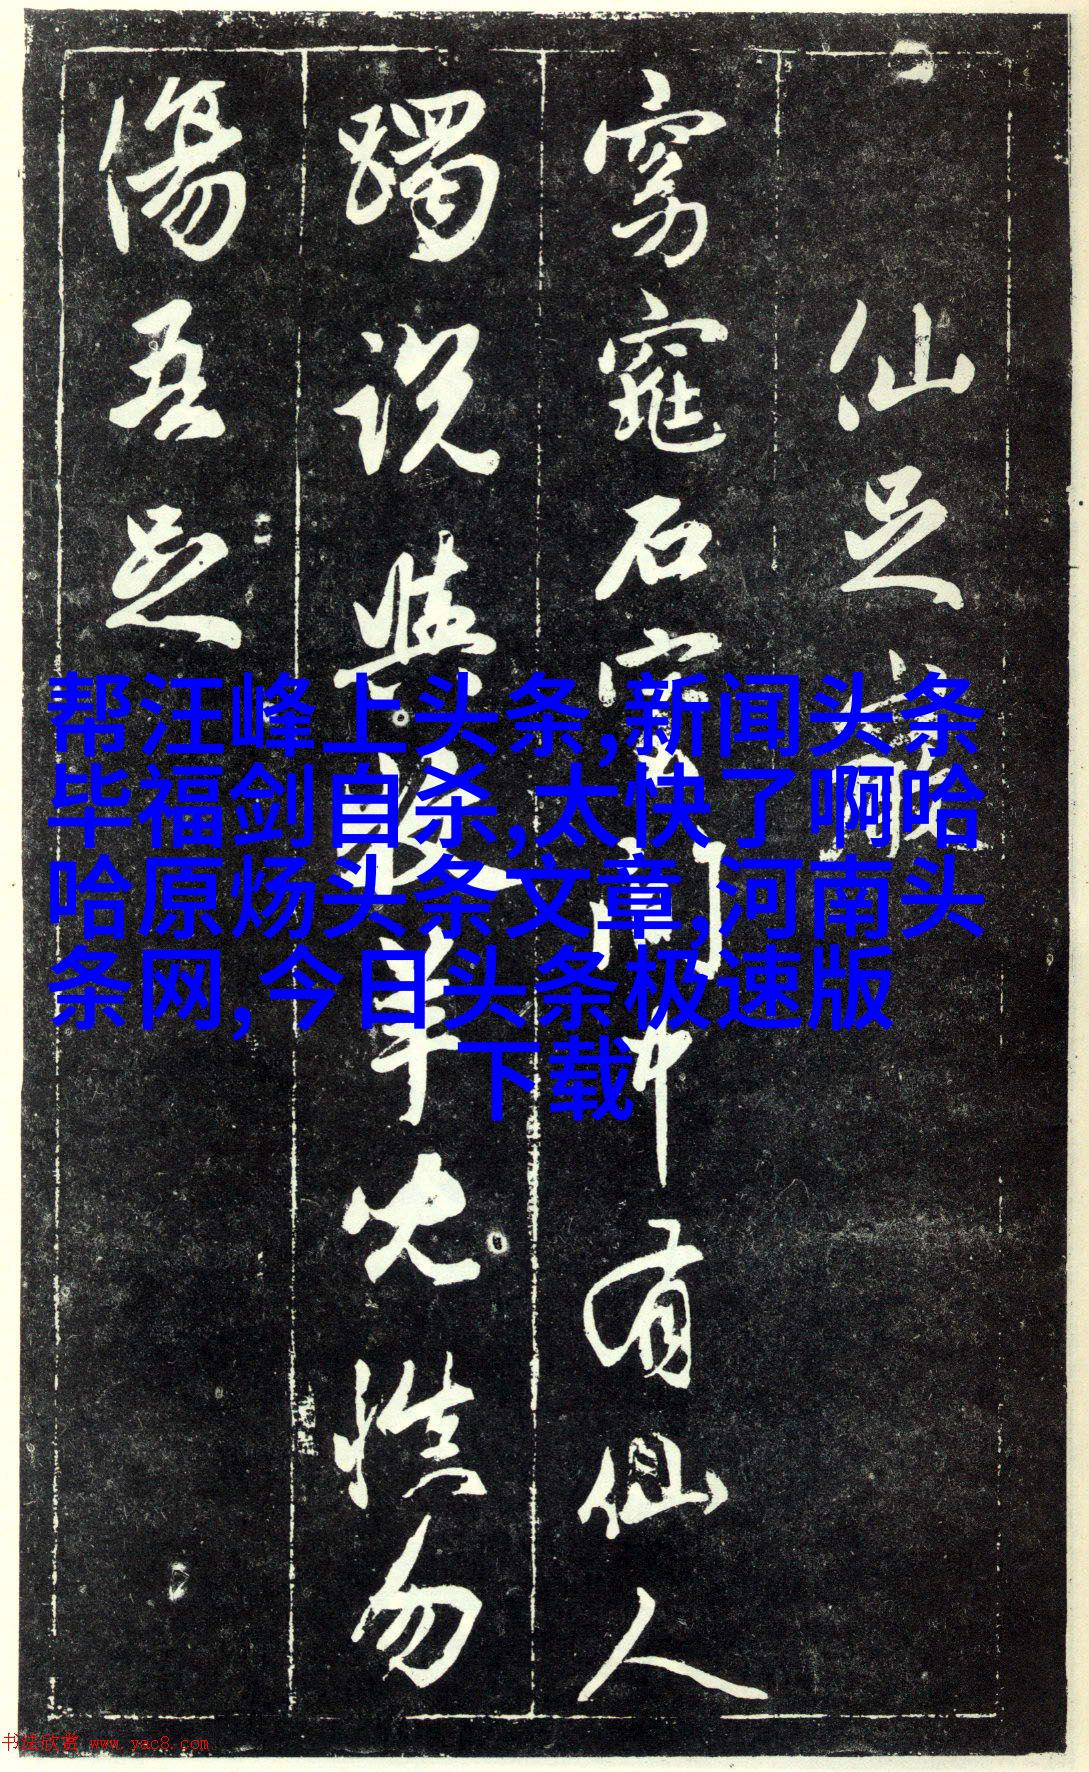 仙足巖
窈窕石室間中有仙人
躅說與牧羊兒慎勿
傷吾足
帮汪峰上头条,新闻头条
毕福剑自杀,太快了啊哈
哈原炀头条文章,河南头
条网,今日头条极速版
下载
书法欣赏 www.yac8.com